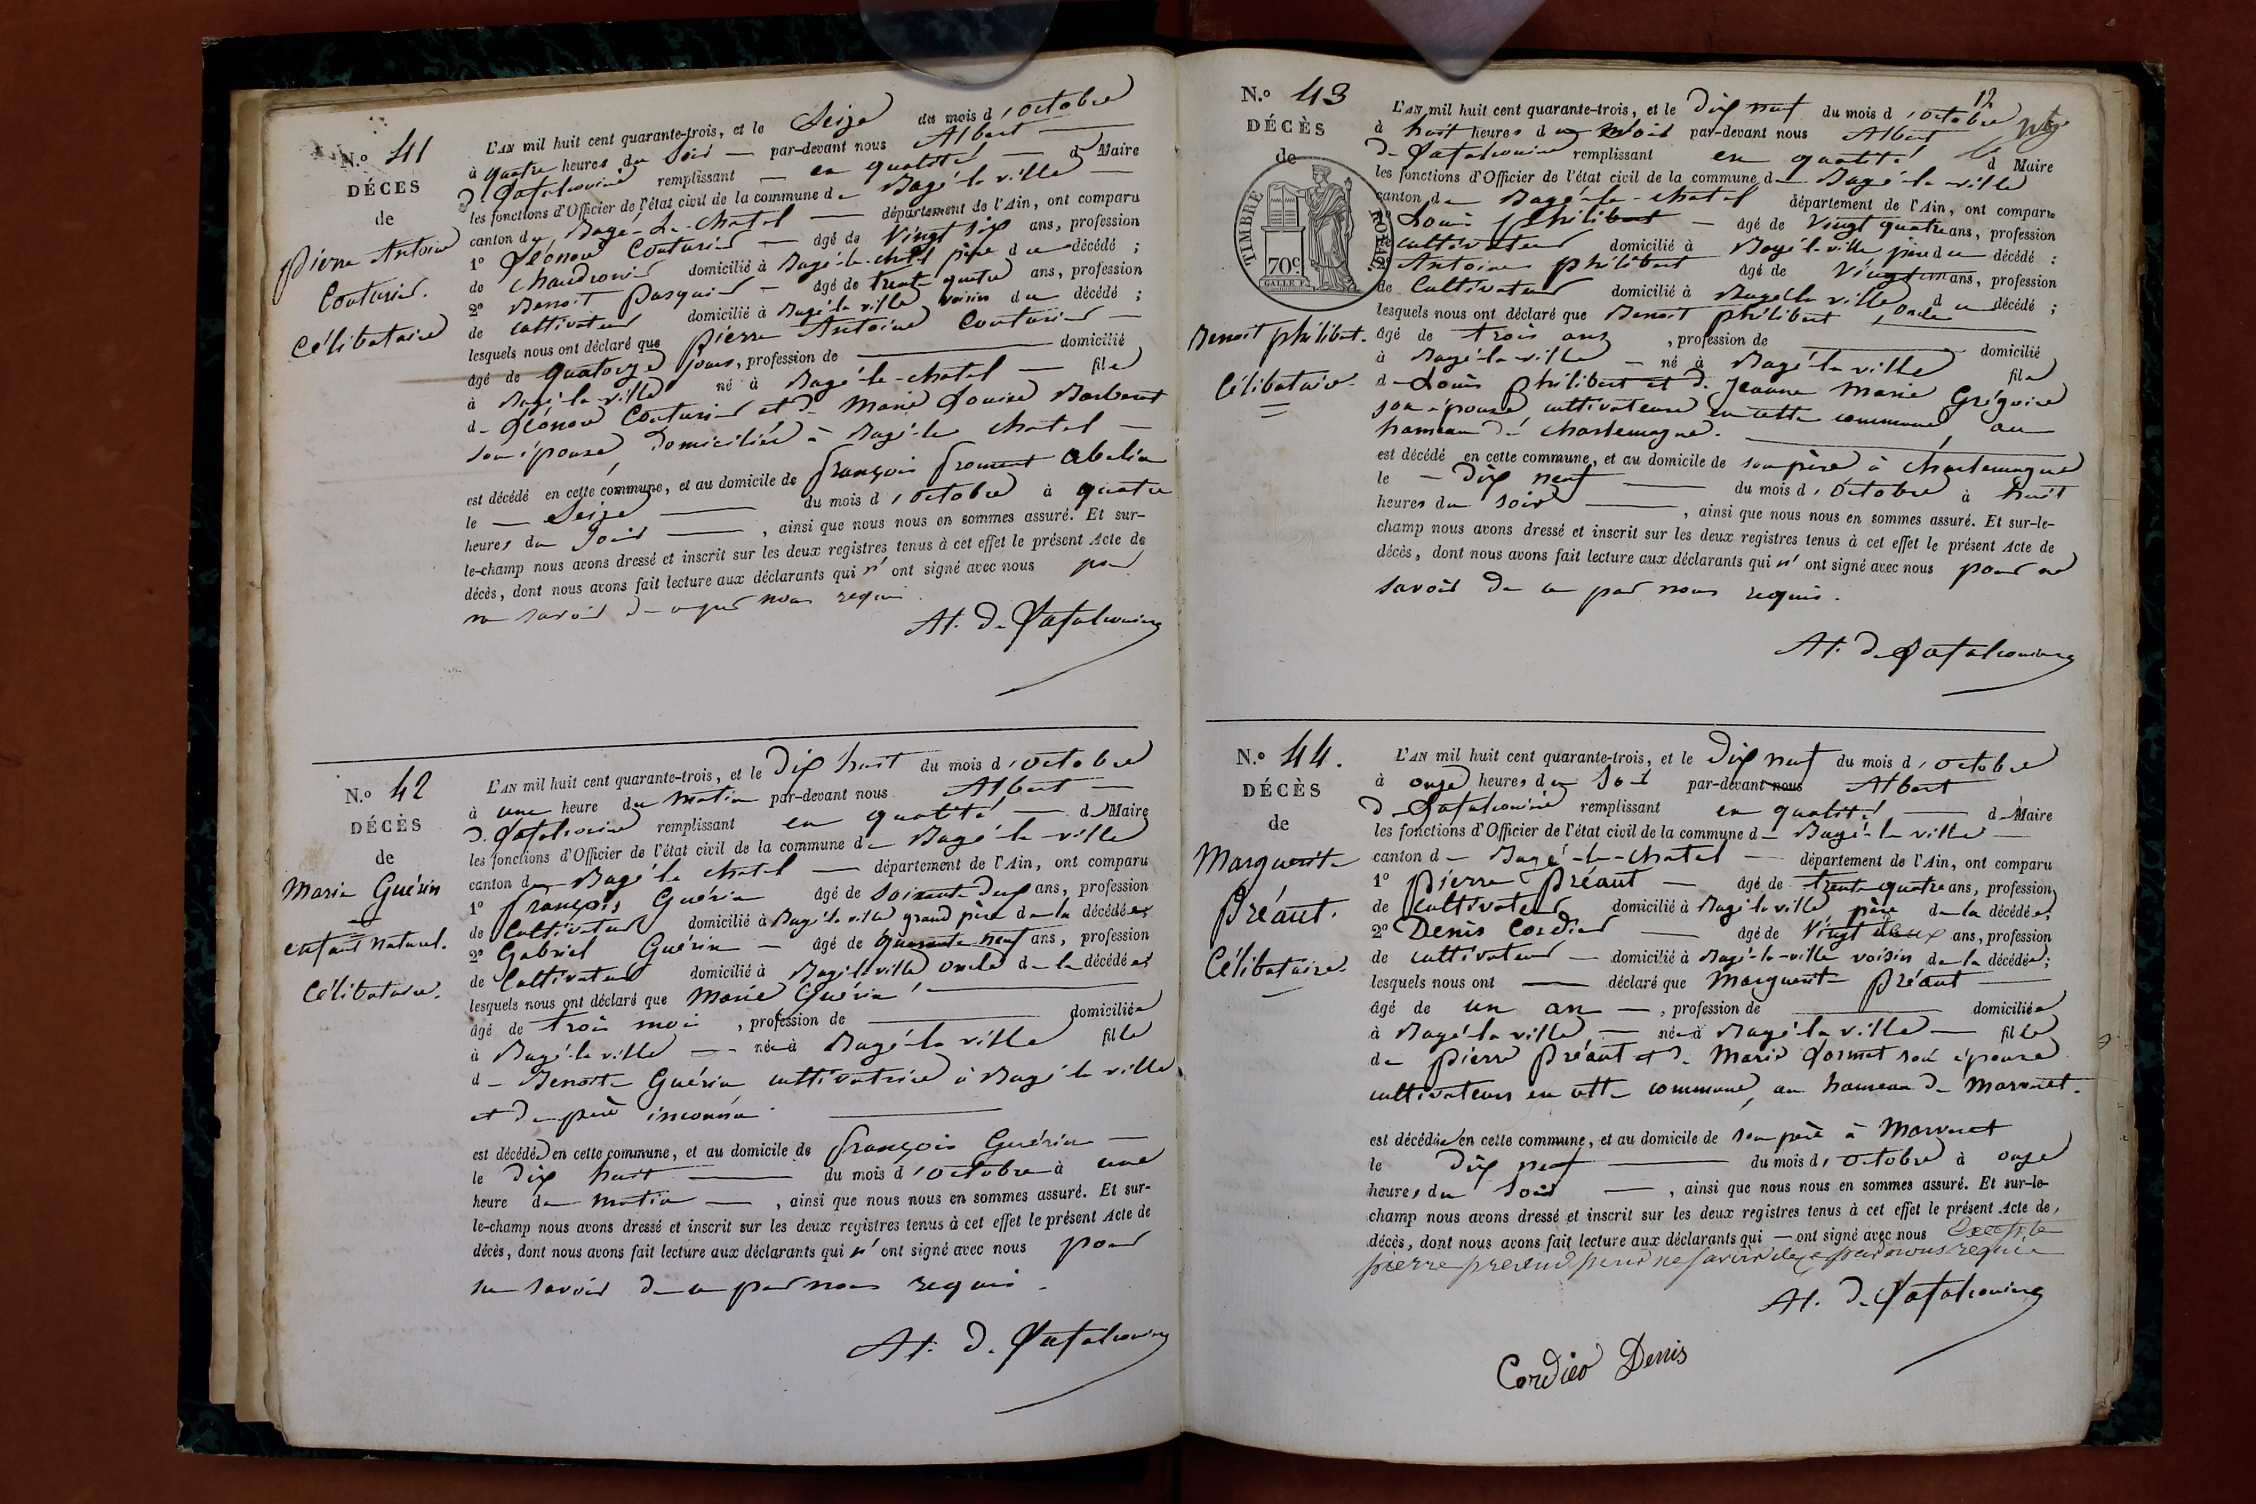 N.º 41
DÉCES
de
Pierre Antoine
Couturier.
Célibataire
L'AN mil huit cent quarante-trois, et le Seize du mois d'octobre
à quatre heures du Soir — par-devant nous Albert —
remplissant — en qualité — de Maire
les fonctions d'Officier de l'état civil de la commune de Bagé-la-ville —
canton de Bagé-Le-Chatel — département de l'Ain, ont comparu
1º Léonard Couturier — âgé de Vingt six ans, profession
de domicilié à Bagé-le-chatel père du décédé ;
2º Benoit Pasquier — âgé de trente quatre ans, profession
de cultivateur domicilié à Bagé la ville voisin du décédé ;
lesquels nous ont déclaré que Pierre Antoine Couturier —
âgé de quatorze jours, profession de — domicilié
à Bagé-la-ville né à Bagé-le-chatel — fils
de Léonard Couturier et de Marie Louise
son épouse, domiciliés à Bagé-le chatel —
est décédé en cette commune, et au domicile de françois froment
le — Seize — du mois d'octobre à quatre
heures du Soir — , ainsi que nous nous en sommes assuré. Et sur-
le-champ nous avons dressé et inscrit sur les deux registres tenus à cet effet le présent Acte de
décès, dont nous avons fait lecture aux déclarants qui n' ont signé avec nous pour
ne savoir de ce par nous requis.
N.º 42
DÉCÈS
de
Marie Guérin
enfant naturel.
Célibataire.
L'AN mil huit cent quarante-trois, et le Dix huit du mois d'octobre
à une heure du matin par-devant nous Albert —
remplissant en qualité — de Maire
les fonctions d'Officier de l'état civil de la commune de Bagé-la-ville
canton de Bagé le chatel — département de l'Ain, ont comparu
1º françois Guérin âgé de soixante dix ans, profession
de Cultivateur domicilié à Bagé la ville grand père de la décédée;
2º Gabriel Guérin — âgé de quarante neuf ans, profession
de Cultivateur domicilié à Bagé-la-ville oncle de la décédée;
lesquels nous ont déclaré que Marie Guérin —
âgé de trois mois , profession de — domiciliée
à Bagé-la ville — née à Bagé-la ville fille
de Benoite Guérin cultivatrice à Bagé-la ville
et de père inconnu —
est décédée en cette commune, et au domicile de françois Guérin —
le dix huit — du mois d'octobre à une
heure du matin — , ainsi que nous nous en sommes assuré. Et sur-
le-champ nous avons dressé et inscrit sur les deux registres tenus à cet effet le présent Acte de
décès, dont nous avons fait lecture aux déclarants qui n' ont signé avec nous pour
ne savoir de ce par nous requis.
N.º 43
DÉCÈS
de
TIMBRE ROYAL.
70c
Benoit philibert.
Célibataire.
12
L'AN mil huit cent quarante-trois, et le Dix neuf du mois d'octobre
à huit heures du par-devant nous Albert
remplissant en qualité de Maire
les fonctions d'Officier de l'état civil de la commune de Bagé-la-ville
canton de Bagé-le-chatel département de l'Ain, ont comparu
1º Louis philibert — âgé de Vingt quatre ans, profession
cultivateur domicilié à Bagé-la-ville père du décédé ;
2º Antoine philibert âgé de ans, profession
de Cultivateur domicilié à Bagé-la ville, oncle du décédé ;
lesquels nous ont déclaré que Benoit philibert —
âgé de trois ans , profession de — domicilié
à Bagé-la-ville — né à Bagé-la ville fils
de Louis philibert et de Jeanne Marie Grégoire
son épouse, cultivateurs en cette commune, au
hameau de charlemagne. —
est décédé en cette commune, et au domicile de son père à charlemagne
le — Dix neuf — du mois d'octobre à huit
heures du soir — , ainsi que nous nous en sommes assuré. Et sur-le-
champ nous avons dressé et inscrit sur les deux registres tenus à cet effet le présent Acte de
décès, dont nous avons fait lecture aux déclarants qui n' ont signé avec nous pour ne
savoir de ce par nous requis.
N.º 44.
DÉCÈS
de
Marguerite
Préaut.
Célibataire.
L'AN mil huit cent quarante-trois, et le Dix neuf du mois d'octobre
à onze heures du Soir par-devant nous Albert
remplissant en qualité — de Maire
les fonctions d'Officier de l'état civil de la commune de Bagé-la ville —
canton de Bagé-le-chatel — département de l'Ain, ont comparu
1º Pierre Préaut — âgé de trente quatre ans, profession
de Cultivateur domicilié à Bagé-la ville père de la décédée,
2º Denis Cordier — âgé de Vingt deux ans, profession
de cultivateur — domicilié à Bagé-la-ville voisin de la décédée;
lesquels nous ont — déclaré que Marguerite Préaut —
âgé de un an — , profession de — domiciliée
à Bagé-la ville — née à Bagé-la ville — fille
de Pierre Préaut et de Marie son épouse
cultivateurs en cette commune, au hameau de Marvaret.
est décédée en cette commune, et au domicile de son père à Marvaret
le Dix neuf — du mois d'octobre à onze
heures du Soir — , ainsi que nous nous en sommes assuré. Et sur-le-
champ nous avons dressé et inscrit sur les deux registres tenus à cet effet le présent Acte de
décès, dont nous avons fait lecture aux déclarants qui — ont signé avec nous Excepté
pierre preaud pour ne savoir de ce par nous requis
Cordier Denis